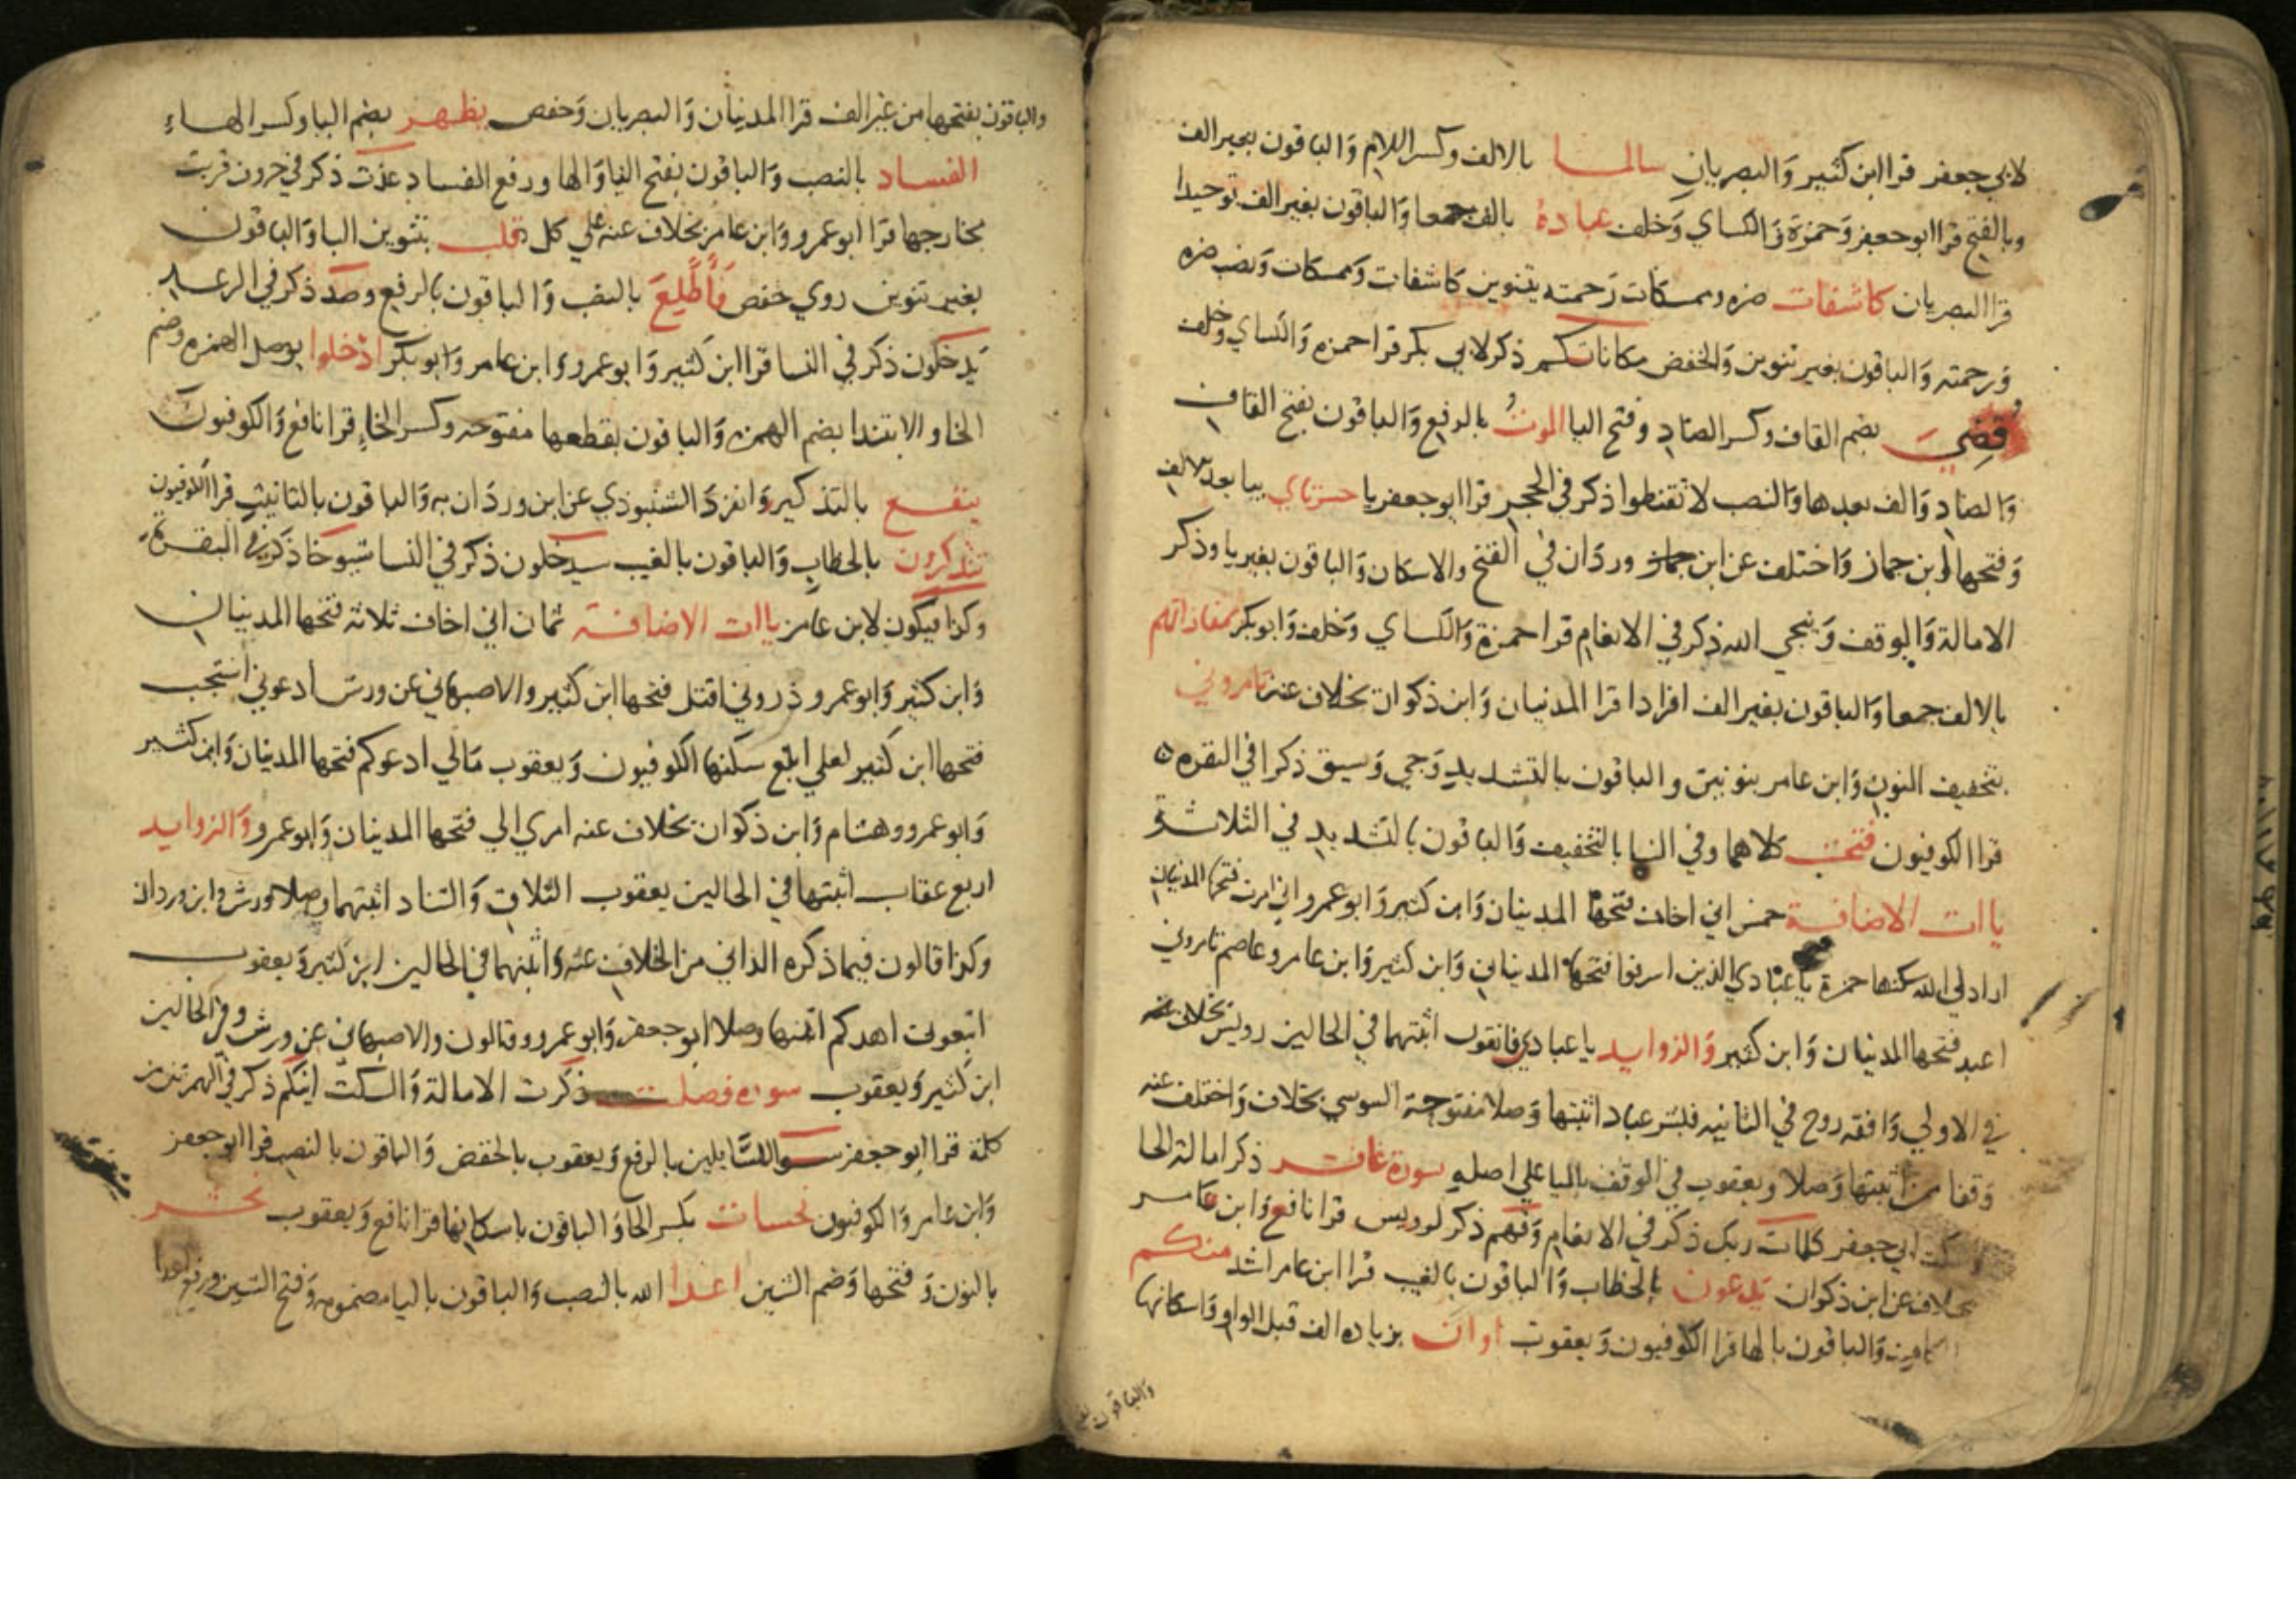 لابي جعفر قرا ابن كثير وَالبصريان سالما بالالف وكسر اللام وَالباقون بغير الف
وبالفتح قرا ابو جعفر وَحمزة وَالكساي وَخلف عبادة بالف جمعا وَالباقون بغير الف توحيدا
قرا البصريان كاشفات ضره وممسكات رَحمته بتنوين كاشفات وَممسكات وَنصب ضره
وَرحمته وَالباقون بغير تنوين وَالخفض مكاناتكم ذكر لابي بكر قرا حمزه وَالكساي وخلف
قُضِيَ بضم القاف وكسر الضاد وفتح اليا الموتُ بالرفع وَالباقون بفتح القاف
وَالضاد وَالف بعدها وَالنصب لا تقنطوا ذكر في الحجر قرا ابو جعفر يا حسرتاي بيا بعد الالف
وَفتحها ابن جماز وَاختلف عن ابن جماز وردَان في الفتح والاسكان وَالباقون بغير يا وذكر
الامالة وَالوقف وَينجي الله ذكر في الانعام قرا حمزة وَالكساي وَخلف وَابو بكر بمفازاتهم
بالالف جمعا وَالباقون بغير الف افرادا قرا المدنيان وَابن ذكوان بخلاف عنه تامروني
بتخفيف النون وَابن عامر بنونين والباقون بالتشديد وَجي وَسيق ذكرا في البقره
قرا الكوفيون فتحت كلاهما وفي النبا بالتخفيف وَالباقون بالتشديد في الثلاثة
ياات الاضافة خمس اني اخاف فتحها المدنيان وَابن كثير وَابو عمرو اني امرت فتحها المدنيان
ارادني الله سكنها حمزة يا عبادي الذين اسرفوا فتحها المدنيان وَابن كثير وَابن عامر وعاصم تامروني
اعبد فتحها المدنيان وَابن كثير وَالزوايد يا عبادي فاتقون اثبتهما في الحالين رويس بخلاف عنه
في الاولي وَافقه روح في الثانيه فبشر عباد اثبتها وَصلا مفتوحة السوسي بخلاف وَاختلف عنه
وَقفا من اثبتها وَصلا ويعقوب في الوقف باليا علي اصله سورة غافر ذكر امالة الحا
وسكت ابي جعفر كلمات ربك ذكر في الانعام وَقهم ذكر لرويس قرا نافع وَابن عامر
بخلاف عن ابن ذكوان يدعون بالخطاب وَالباقون بالغيب قرا ابن عامر اشد منكم
بالكاف وَالباقون بالها قرا الكوفيون وَيعقوب او ان بزياده الف قبل الواو وَاسكانها
وَالباقون
والباقون بفتحها من غير الف قرا المدنيان وَالبصريان وَحفص يظهر بضم اليا وكسر الهاء
الفساد بالنصب وَالباقون بفتح اليا وَالها ورفع الفساد عذت ذكر في حروف قربت
مخارجها قرا ابو عمرو وَابن عامر بخلاف عنه علي كل قلب بتنوين البا وَالباقون
بغير تنوين روي حفص فَأَطَّلِعَ بالنصب وَالباقون بالرفع وصد ذكر في الرعد
يَدخلون ذكر في النسا قرا ابن كثير وَابو عمرو وَابن عامر وَابو بكر ادخلوا بوصل الهمزه وضم
الخا والابتدا بضم الهمزه وَالباقون بقطعها مفتوحه وكسر الخاء قرا نافع وَالكوفيون
ينفع بالتذكير وَانفرد الشنبوذي عن ابن وردَان به وَالباقون بالتانيث قرا الكوفيون
تتذكرون بالخطاب وَالباقون بالغيب سيدخلون ذكر في النسا شيوخا ذكر في البقرة
وكذا فيكون لابن عامر ياات الاضافة ثمان اني اخاف ثلاثة فتحها المدنيان
وَابن كثير وَابو عمرو ذروني اقتل فتحها ابن كثير والاصبهاني عن ورش ادعوني استجب
فتحها ابن كثير لعلي ابلغ سكنها الكوفيون وَيعقوب مَالي ادعوكم فتحها المدنيان وَابن كثير
وَابو عمرو وهشام وَابن ذكوان بخلاف عنه امري الي فتحها المدنيان وَابو عمرو وَالزوايد
اربع عقاب اثبتها في الحالين يعقوب التلاق وَالتناد اثبتهما وصلا ورش وابن وردان
وكذا قالون فيما ذكره الداني من الخلاف عنه وَاثبتهما في الحالين ابن كثير وَيعقوب
اتبعوني اهدكم اثبتها وصلا ابو جعفر وَابو عمرو وقالون والاصبهاني عن ورش وفي الحالين
ابن كثير وَيعقوب سورة فصلت ذكرت الامالة وَالسكت ائنكم ذكر في الهمزتين من
كلمة قرا ابو جعفر سوا للسَّايلين بالرفع وَيعقوب بالخفض وَالباقون بالنصب قرا ابو جعفر
وَابن عامر وَالكوفيون نحسات بكسر الحا وَالباقون باسكانها قرا نافع وَيعقوب نحشر
بالنون وَفتحها وَضم الشين اعدا الله بالنصب وَالباقون باليا مضمومه وَفتح الشين ورفع اعدا